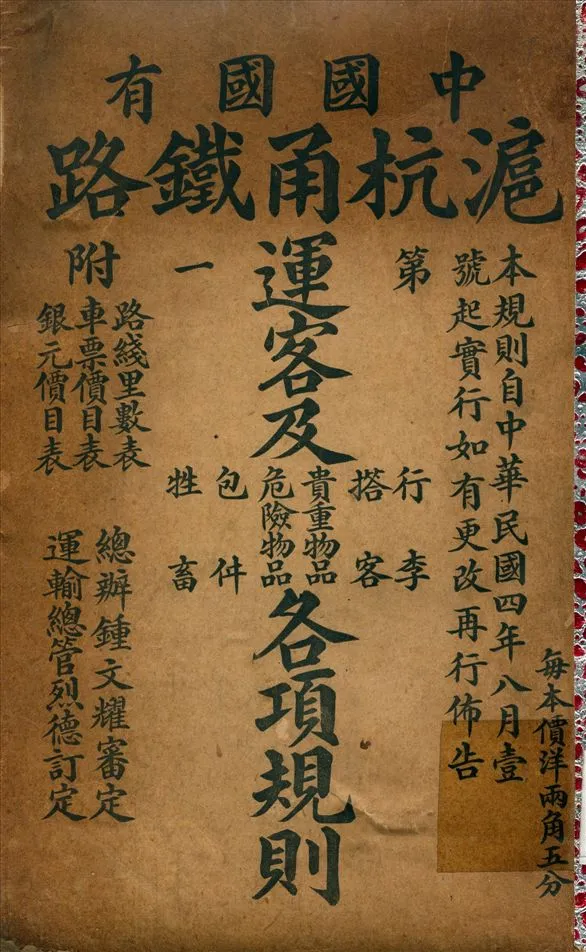 中國國有
滬杭甬鐵路
每本價洋兩角五分
本規則自中華民國四年八月壹
號起實行如有更改再行佈告
第一
運客及
行李
搭客
貴重物品
危險物品
包件
牲畜
各項規則
附
路綫里數表
車票價目表
銀元價目表
總辦鍾文耀審定
運輸總管烈德訂定